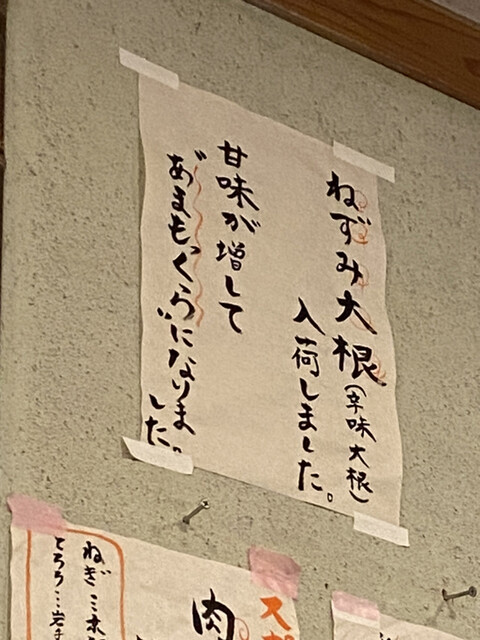 ねずみ大根(辛味大根)
入荷しました。
甘味が増して
“あまもっくら”になりま
した。
ねぎ…木
とろろ…岩手
肉
スポ